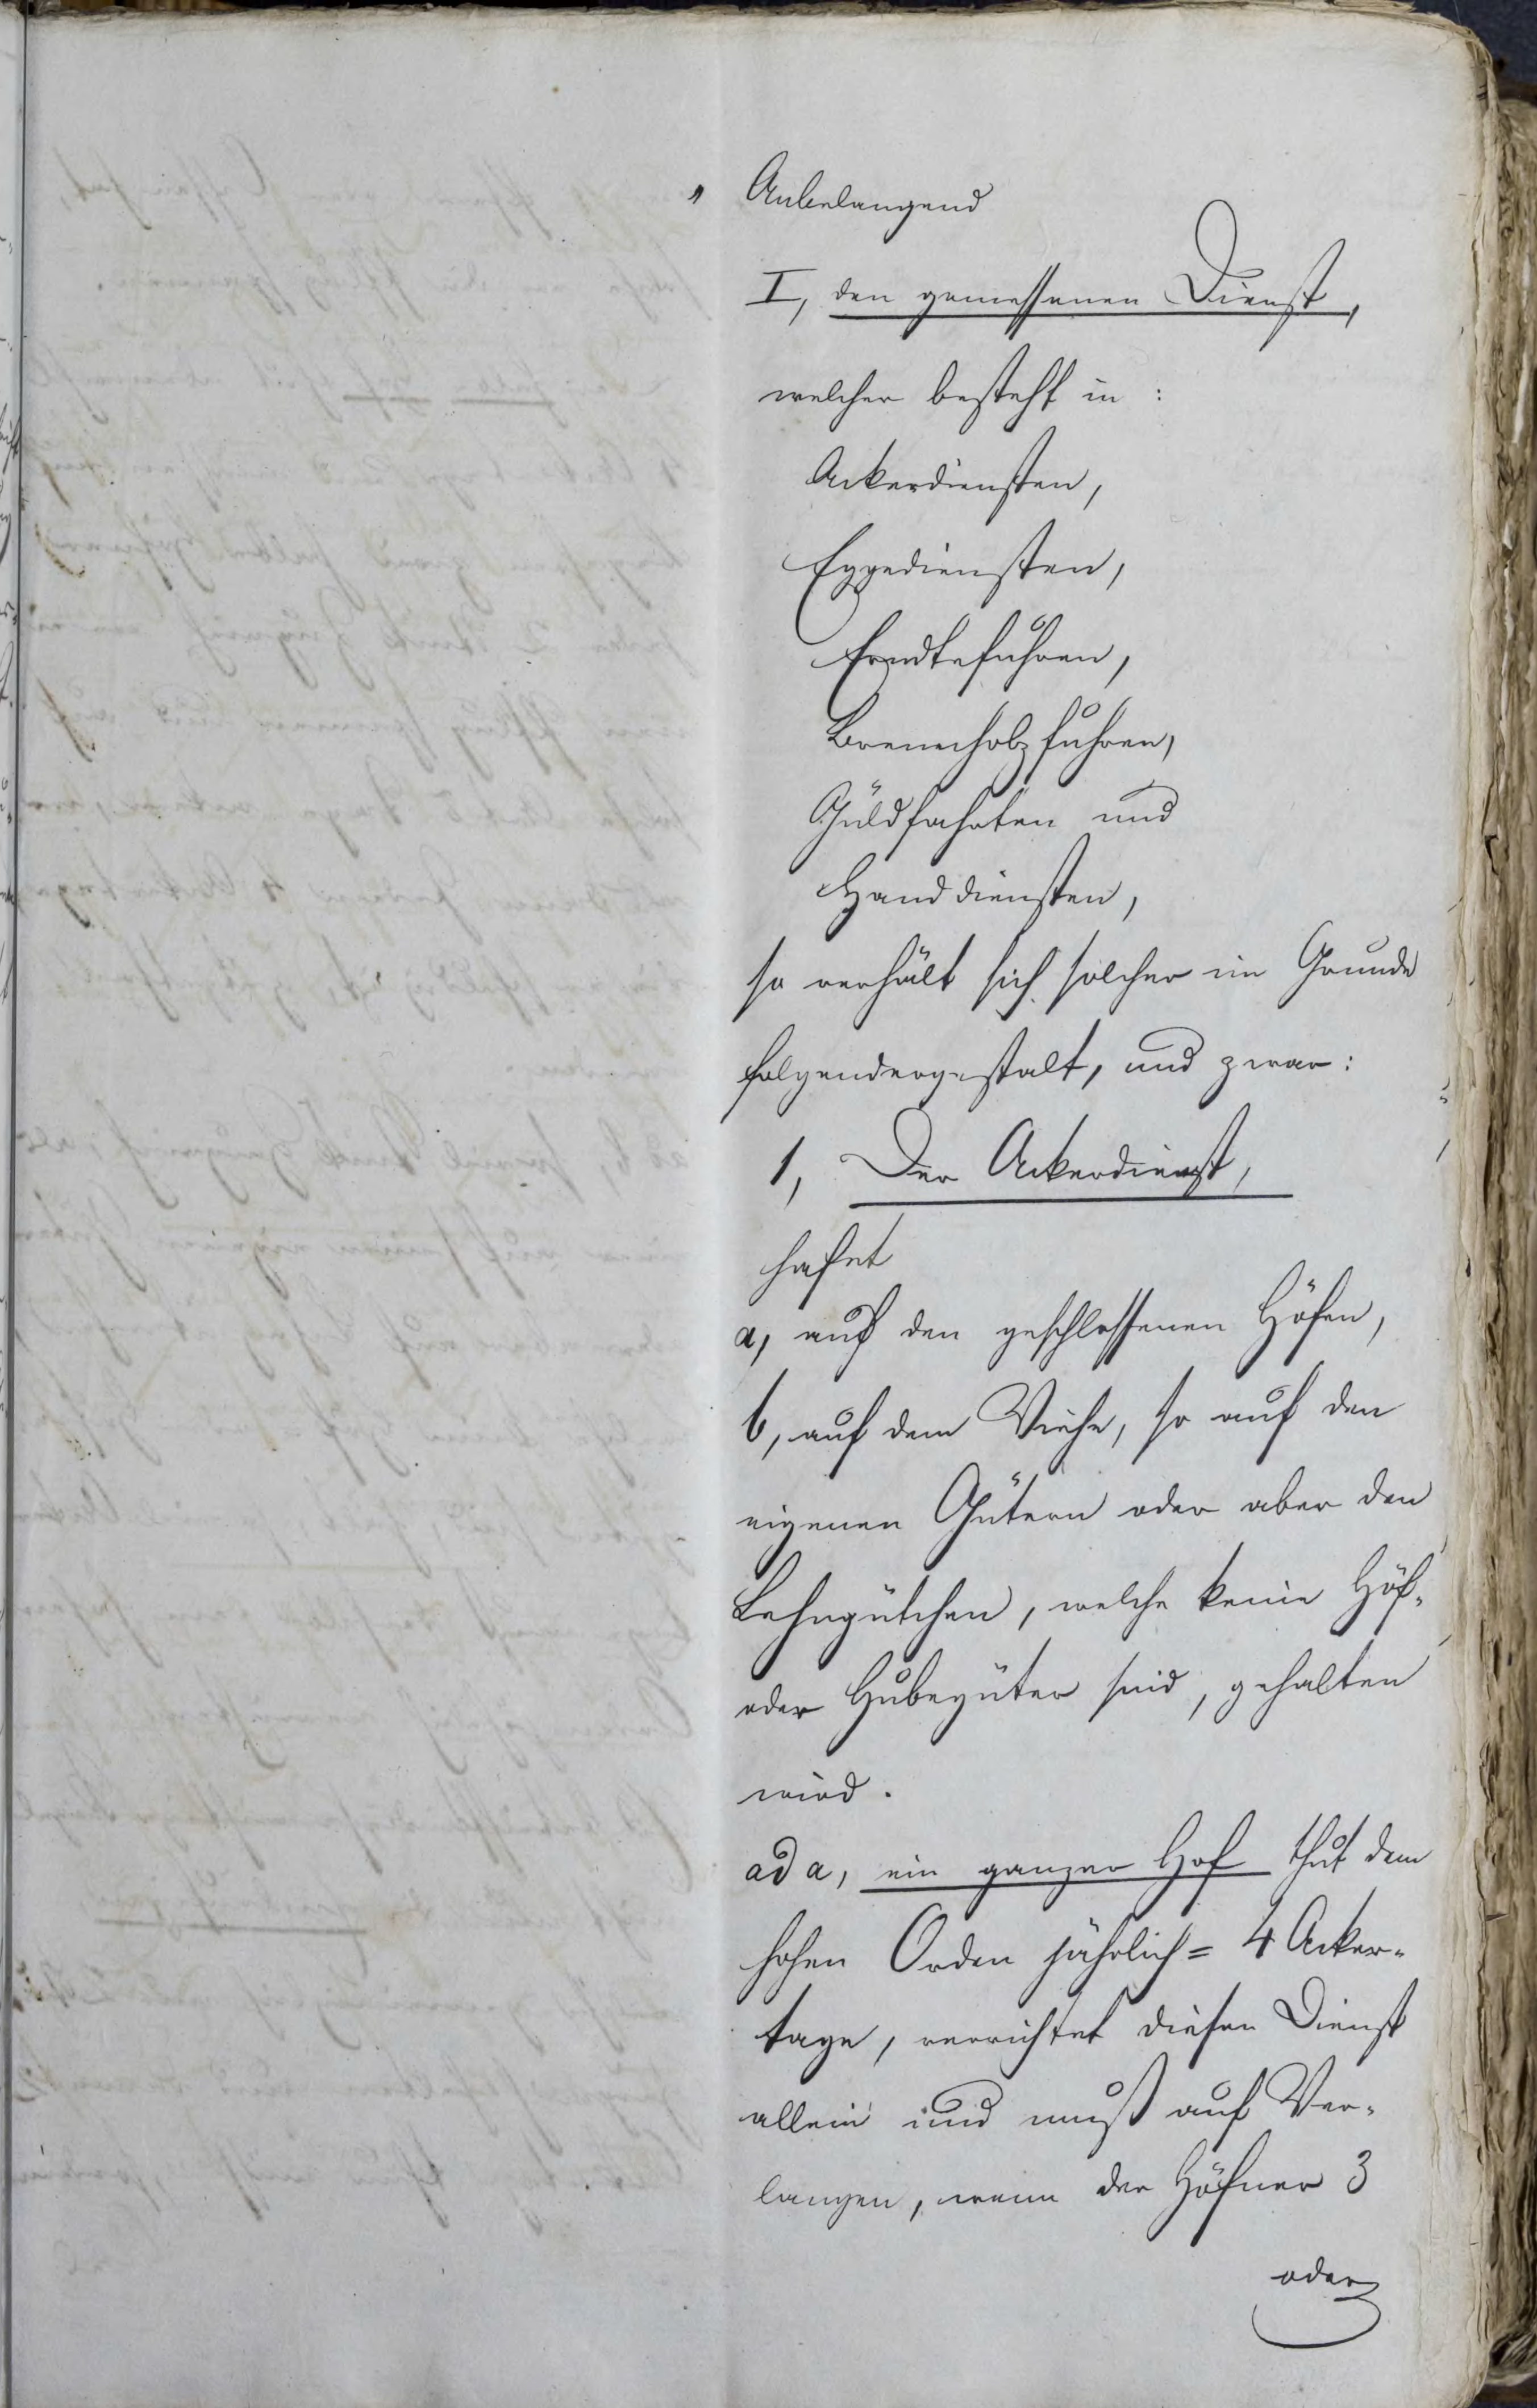 " Anbelangend
I, den gemessenen Dienst,
welcher besteht in :
Ackerdiensten,
Eggediensten,
Erndtefuhren,
Brennholzfuhren,
Güldfahrten und
Handdiensten,
so verhält sich solcher im Grunde
folgendergestalt, und zwar:
1, Der Ackerdienst,
haftet
a, auf den geschlossenen Höfen,
b, auf dem Viehe, so auf den
eigenen Gütern oder aber den
Lehngütchen, welche keine Höf-
oder Hubegüter sind, gehalten
wird.
ad a, ein ganzer Hof thut dem
hohen Orden jährlich = 4 Acker-
tage, verrichtet diesen Dienst
allein und muß auf Ver-
langen, wenn der Höfner 3
oder